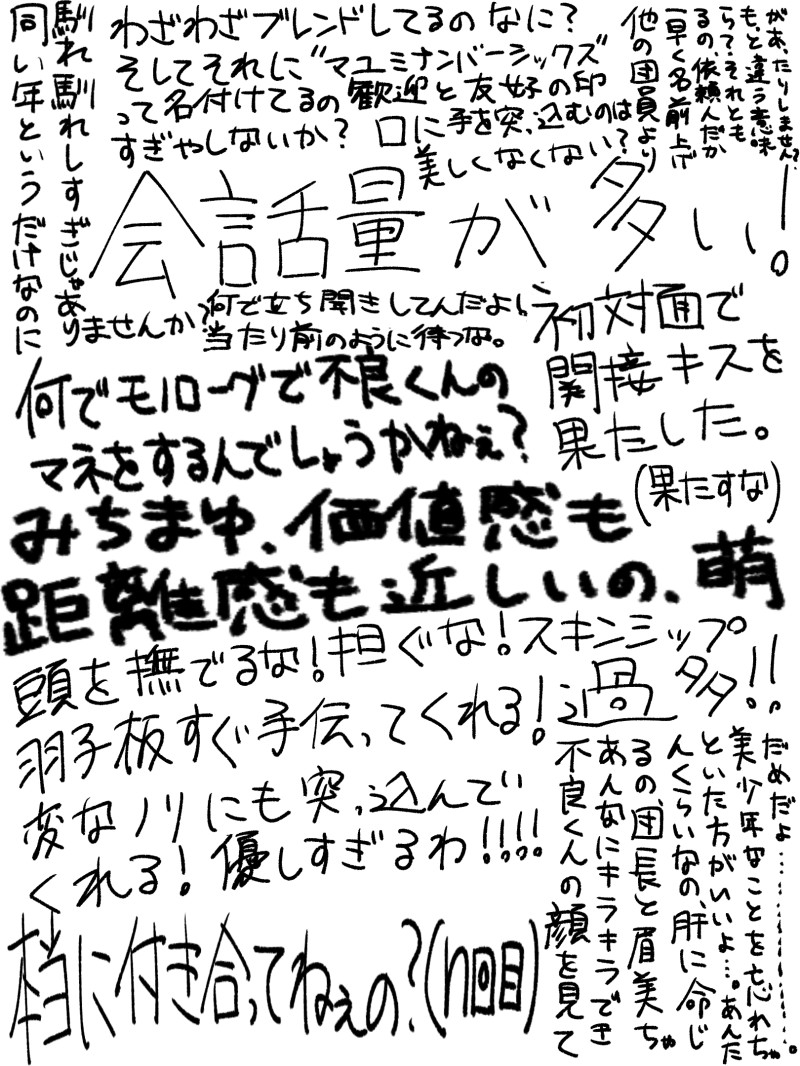 同い年というだけなのに
馴れ馴れしすぎじゃあり
ませんか?
わざわざブレンドしてるのなに?
そしてそれに“マユミナンバーシックス”
って名付けてるの歓迎と友好の印
すぎやしないか?
口に手を突っ込むのは
美しくなくない?
他の団員より
一早く名前上げ
るの、依頼人だか
らって?それとも
もっと違う意味
があったりしません?
会話量が多い!
何で立ち聞きしてんだよ!
当たり前のように待つな。
初対面で
間接キスを
果たした。
(果たすな)
何でモノローグで不良くんの
マネをするんでしょうかねぇ?
みちまゆ、価値感も
距離感も近しいの、萌
頭を撫でるな!担ぐな!スキンシップ
過多!!
羽子板すぐ手伝ってくれる!
変なノリにも突っ込んで
くれる!優しすぎるわ!!!!
本当に付き合ってねぇの?(n回目)
不良くんの顔を見て
あんなにキラキラでき
るの、団長と眉美ちゃ
んくらいなの、肝に命じ
といた方がいいよ…。あんた
美少年なことを忘れちゃ
だめだよ………………。